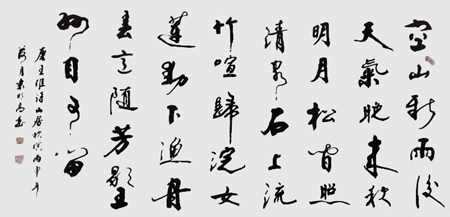 空山新雨後
天氣晚來秋
明月松間照
清泉石上流
竹喧歸浣女
蓮動下漁舟
春意隨芳歇王
孫自可留
唐王維詩山居秋暝丙申年